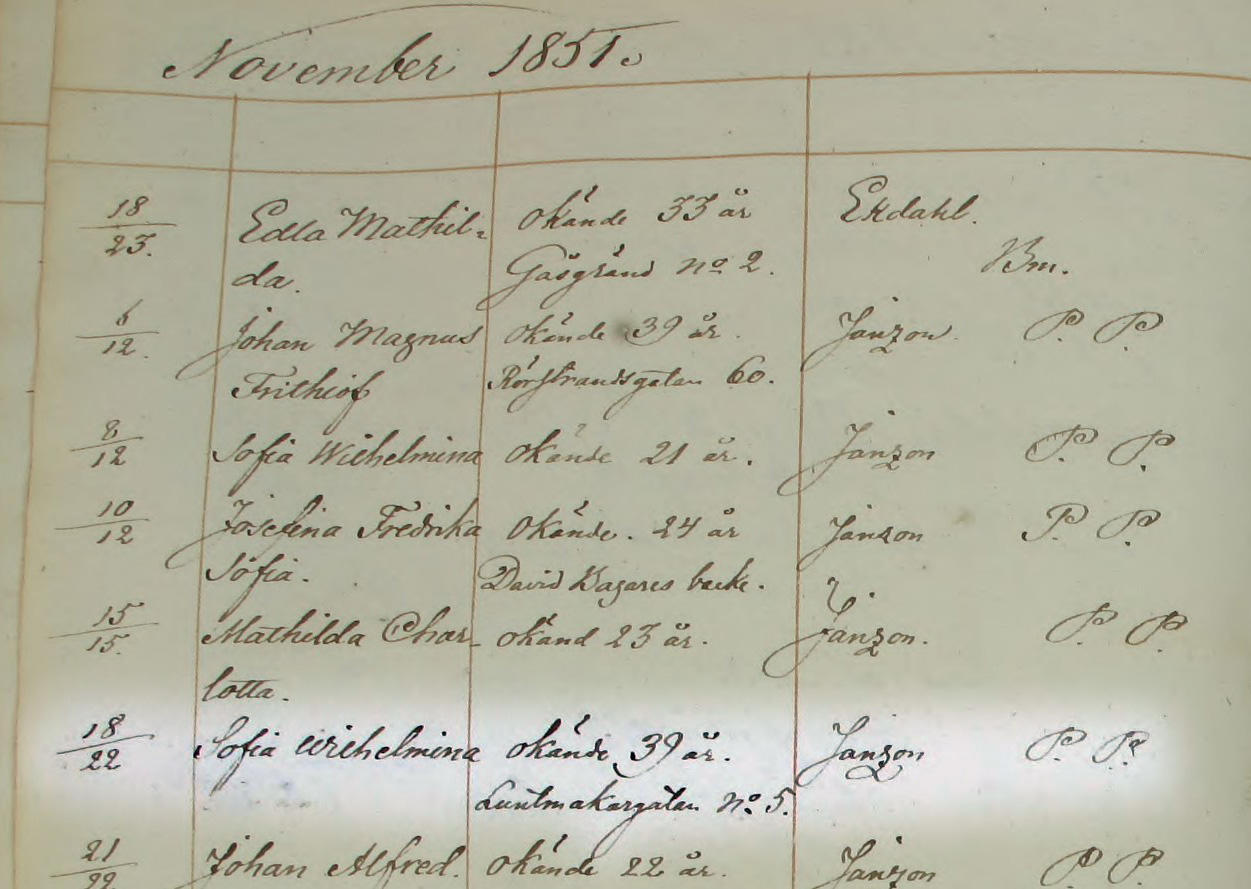 November 1851.
18 Edla Mathil- okände 33 år Ekdahl.
23. da. Gåsgränd No 2. Bm.
6 Johan Magnus okände 39 år. Janzon P. P.
12. Frithiof Rörstrandsgatan 60.
8 Sofia Wilhelmina okände 21 år. Janzon P. P.
12
10 Josefina Fredrika okände. 24 år Janzon P. P.
12 Sofia. David Bagares backe.
15 Mathilda Char- okänd 23 år. Janzon. P. P.
15. lotta.
18 Sofia Wilhelmina okände 39 år. Janzon P. P.
22 Luntmakargatan No 5.
21 Johan Alfred. okände 22 år. Janzon P. P.
22